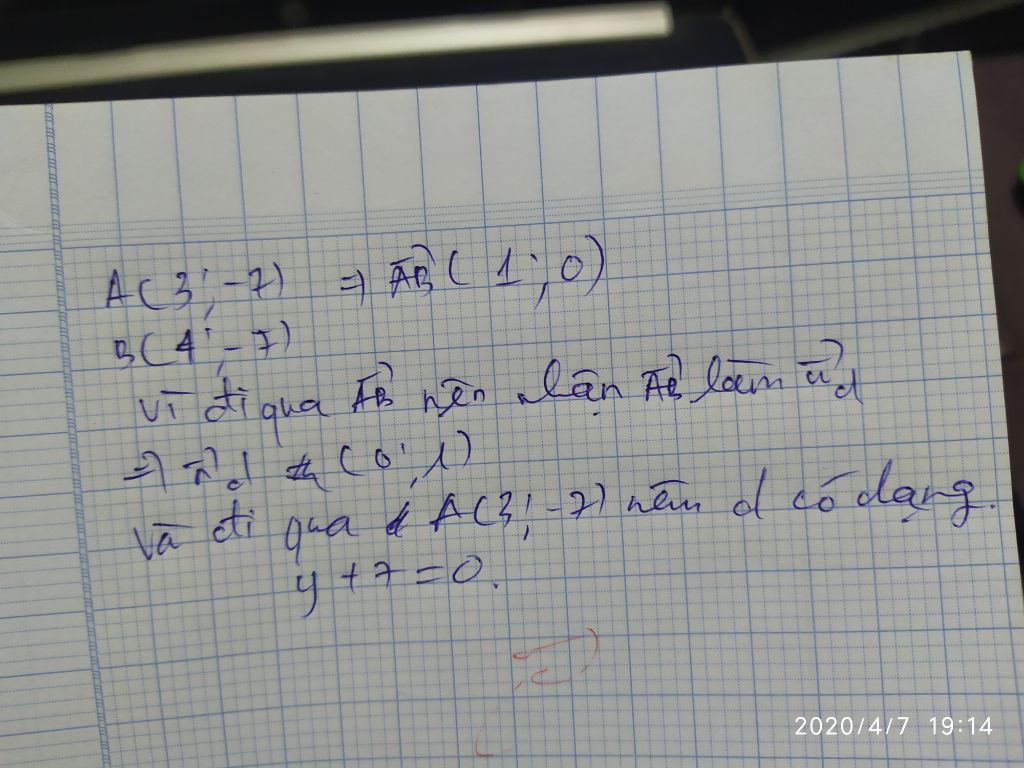 A(3;-7) ⇒ AB(1;0)
B(4;-7)
Vì đi qua AB nên nhận AB làm u d
⇒ n d (0;1)
Và đi qua A(3;-7) nên d có dạng.
y + 7 = 0.
2020/4/7 19:14